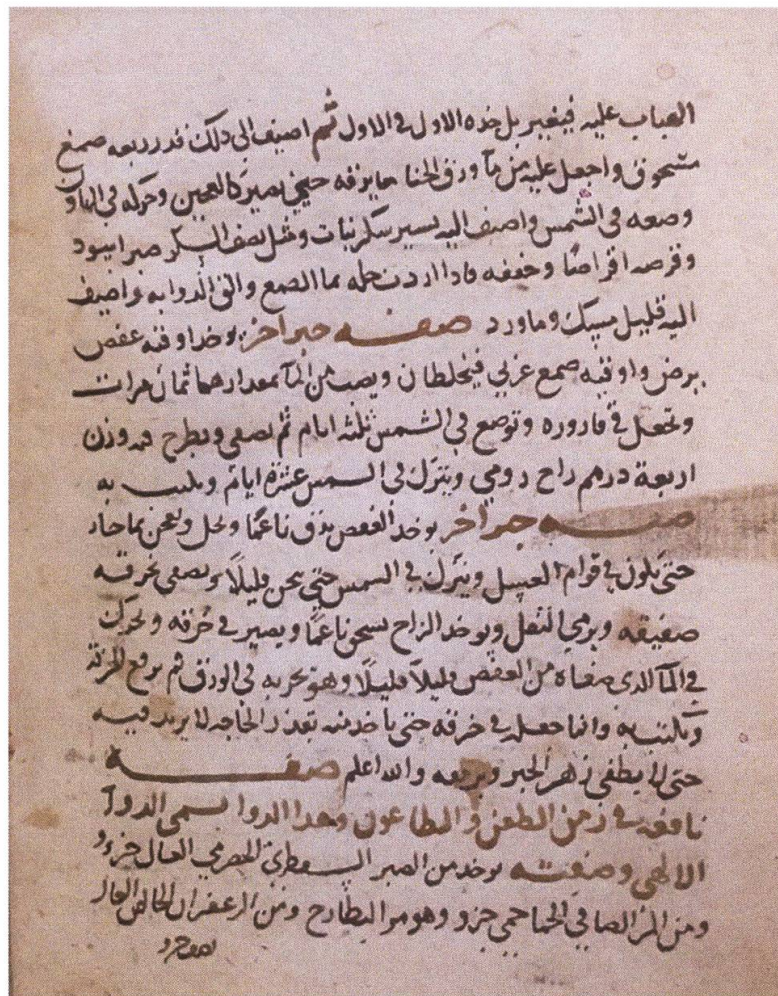 الهباب عليه فيغيير بل خده الاول في الاول ثم اضيف الى ذلك قدر ربعه صمغ
مسحوق واجعل عليه من مآ ورق الحنا ما يزقه حتى يصير كالعجين وحركه في الهاون
وضعه في الشمس واضف اليه يسير سكر نبات ومثل نصف السكر صبر اسود
وقرصه اقراصًا وجففه فادا اردت حله بمآ الصمغ والق الدوا به واضيف
اليه قليل مسك وماورد صفــه حبر اخر يوخد اوقيه عفص
يرض واوقيه صمغ عربي فيخلطان ويصب من المآ مقدارهما ثمان مرات
وتجعل في قاروره وتوضع في الشمس ثلثة ايام ثم يصفى ويطرح فيه وزن
اربعة درهم زاج رومي ويترك في الشمس عشرة ايام ويكتب به
صفــه حبر اخر يوخد العفص يدق ناعمًا ونخل ويعجن بما حار
حتى يكون في قوام العسل ويترك في الشمس حتى يسخن قليلًا ويصفى بخرقه
صفيقه ويرمي الثفل ويوخد الزاج يسحق ناعمًا ويصير في خرقه ويحرك
في المآ الدى صفاه من العفص قليلًا قليلًا وهو يجربه في الورق ثم يرفع الخرقة
ويكتب به وانما جعله في خرقه حتى ياخد منه بقدر الحاجه لا يزيد فيه
حتى لا يطفي زهر الحبر ويرفعه والله اعلم صفــــه
نافعه في زمن الطعن والطاعون وهدا الدوا يسمى الدوآ
الالهي وصفته يوخد من الصبر السقطرى الحضرمي العال جزو
ومن المر الصافي الجناحي جزو وهو مر البطارخ ومن الزعفران الخالص العال
نصف جزو